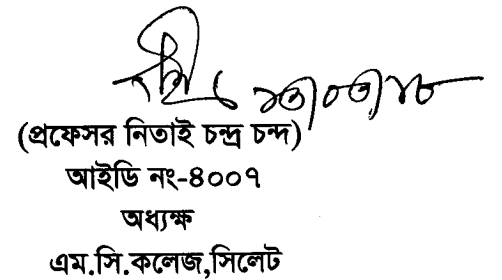 ১৩/০৩/১৮
(প্রফেসর নিতাই চন্দ্র চন্দ)
আইডি নং-৪০০৭
অধ্যক্ষ
এম.সি.কলেজ,সিলেট